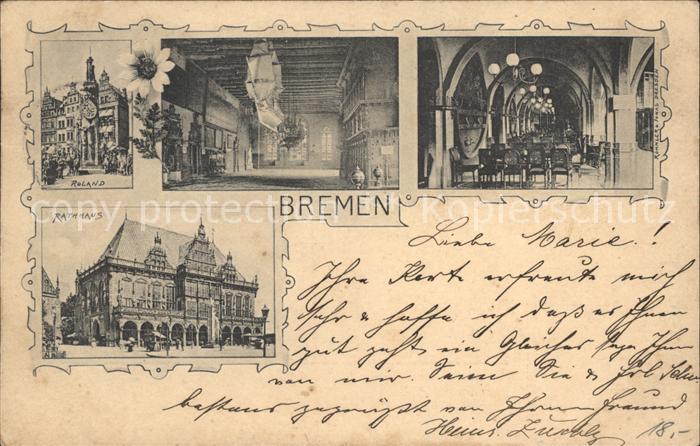 ROLAND
BREMEN
RATHHAUS
copy protection · Kopierschutz
Liebe Marie!
Ihre Karte erfreute mich
sehr & hoffe ich daß es Ihnen
gut geht ein Gleiches Ihnen
von mir. Seien Sie & Frl
bestens gegrüßt von Ihrem Freund
Heinr.
18,-